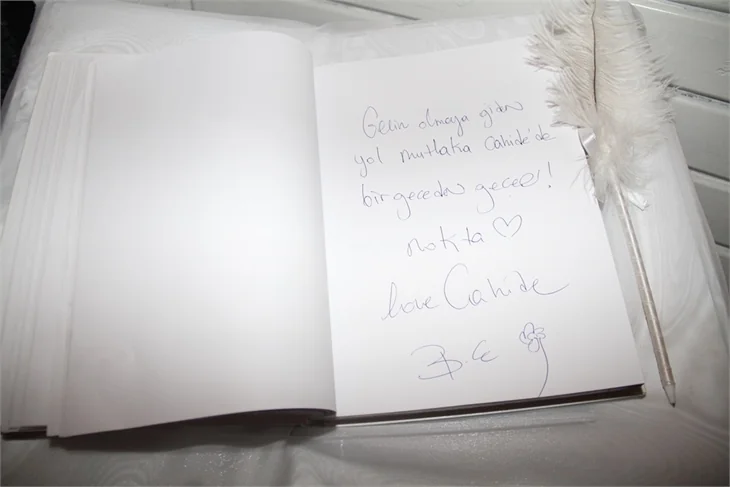 Gelin olmaya giden
yol mutlaka Cahide'de
bir geceden geçer!
nokta ♡
love Cahide
B.C